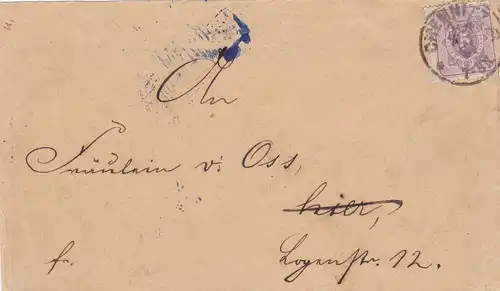 An
Fräulein v. Oss,
hier,
fr. Logenstr. 12.